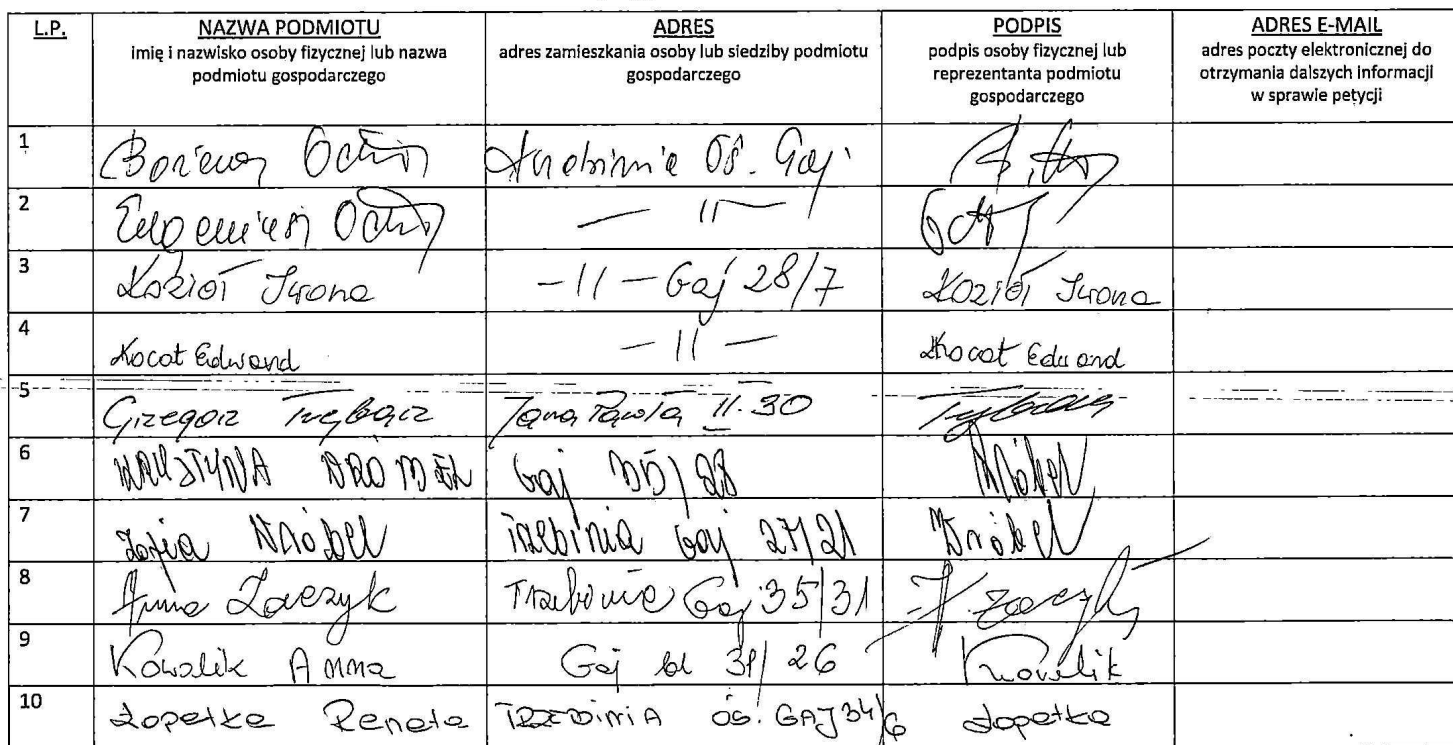 L.P. NAZWA PODMIOTU ADRES PODPIS ADRES E-MAIL
imię i nazwisko osoby fizycznej lub nazwa podmiotu gospodarczego
adres zamieszkania osoby lub siedziby podmiotu gospodarczego
podpis osoby fizycznej lub reprezentanta podmiotu gospodarczego
adres poczty elektronicznej do otrzymania dalszych informacji w sprawie petycji
1 Ochoj Os. Gaj
2 — 11 —
3 Kozioł Iwona - 11 - Gaj 28/7 Kozioł Iwona
4 Kocot Edward - 11 - Kocot Edward
5 Grzegorz Trębacz Jana Pawła II 30
6 Gaj Wróbel
7 Zofia Wróbel Trzebinia Gaj 27/21 Wróbel
8 Anna Zaczyk Trzebinia Gaj 35/31 A. Zaczyk
9 Kowalik Anna Gaj bl 31/26 Kowalik
10 Łopatka Renata TRZEBINIA OS. GAJ 34/6 Łopatka